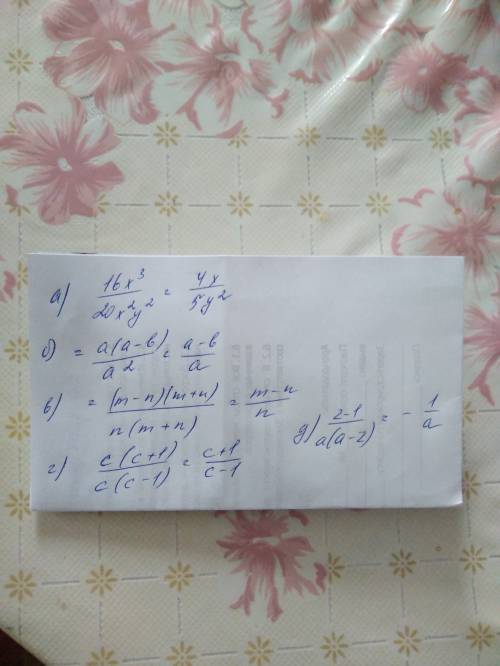 а) 16x³/20x²y² = 4x/5y²
б) = a(a-b)/a² = a-b/a
в) = (m-n)(m+n)/n(m+n) = m-n/n
г) c(c+1)/c(c-1) = c+1/c-1
д) 2-1/a(a-2) = - 1/a